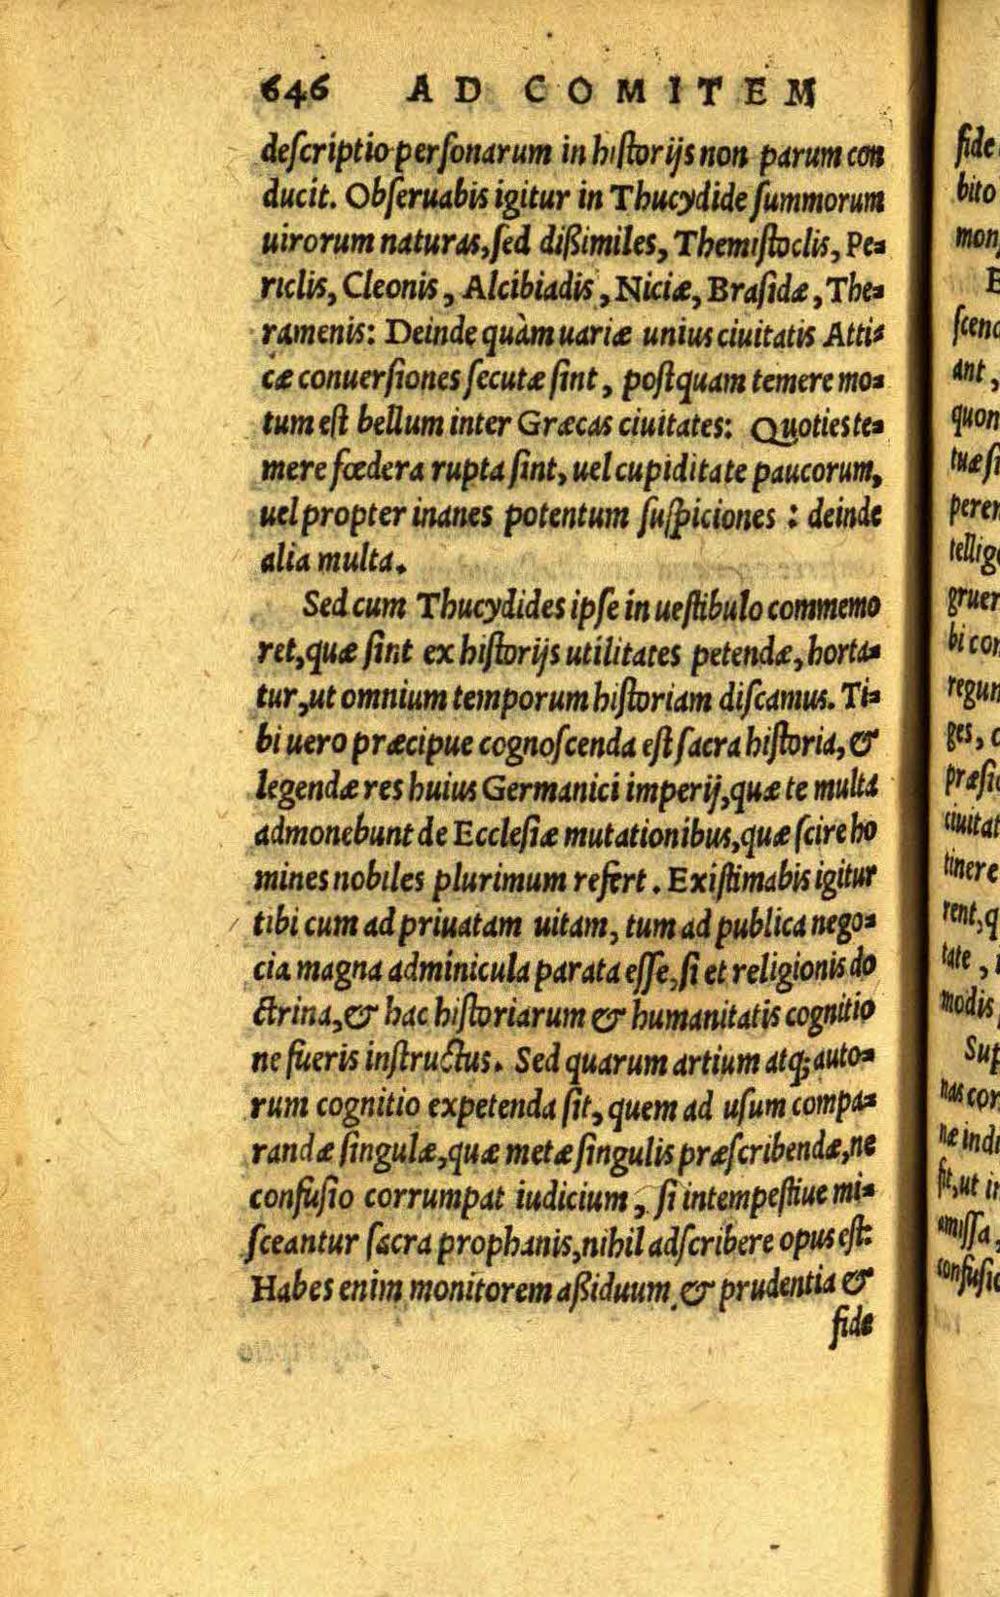 646 AD COMITEM
deſcriptio perſonarum in hiſtorijs non parum con
ducit. Obſeruabis igitur in Thucydide ſummorum
uirorum naturas, ſed dißimiles, Themiſtoclis, Pe⸗
riclis, Cleonis, Alcibiadis, Niciæ, Braſidæ, The⸗
ramenis: Deinde quàm uariæ unius ciuitatis Atti⸗
cæ conuerſiones ſecutæ ſint, poſtquam temere mo⸗
tum eſt bellum inter Græcas ciuitates: Quoties te⸗
mere fœdera rupta ſint, uel cupiditate paucorum,
uel propter inanes potentum ſuſpiciones: deinde
alia multa.
Sed cum Thucydides ipſe in ueſtibulo commemo
ret, quæ ſint ex hiſtorijs utilitates petendæ, horta⸗
tur, ut omnium temporum hiſtoriam diſcamus. Ti⸗
bi uero præcipue cognoſcenda eſt ſacra hiſtoria, &
legendæ res huius Germanici imperij, quæ te multa
admonebunt de Eccleſiæ mutationibus, quæ ſcire ho
mines nobiles plurimum refert. Exiſtimabis igitur
tibi cum ad priuatam uitam, tum ad publica nego⸗
cia magna adminicula parata eſſe, ſi et religionis do
ctrina, & hac hiſtoriarum & humanitatis cognitio
ne fueris inſtructus. Sed quarum artium atq; auto⸗
rum cognitio expetenda ſit, quem ad uſum compa⸗
randæ ſingulæ, quæ metæ ſingulis præſcribendæ, ne
confuſio corrumpat iudicium, ſi intempeſtiue mi⸗
ſceantur ſacra prophanis, nihil adſcribere opus eſt:
Habes enim monitorem aßiduum, & prudentia &
fide
fide
bito
mon
E
ſcend
ant,
quon
tuæ ſi
perer
tellig
gruer
bi cor
regun
ges, c
præſi
ciuitat
tinere
rent, q
tate,
modis
Sup
nas cor
næ indi
ſit, ut in
amiſſa,
confuſio